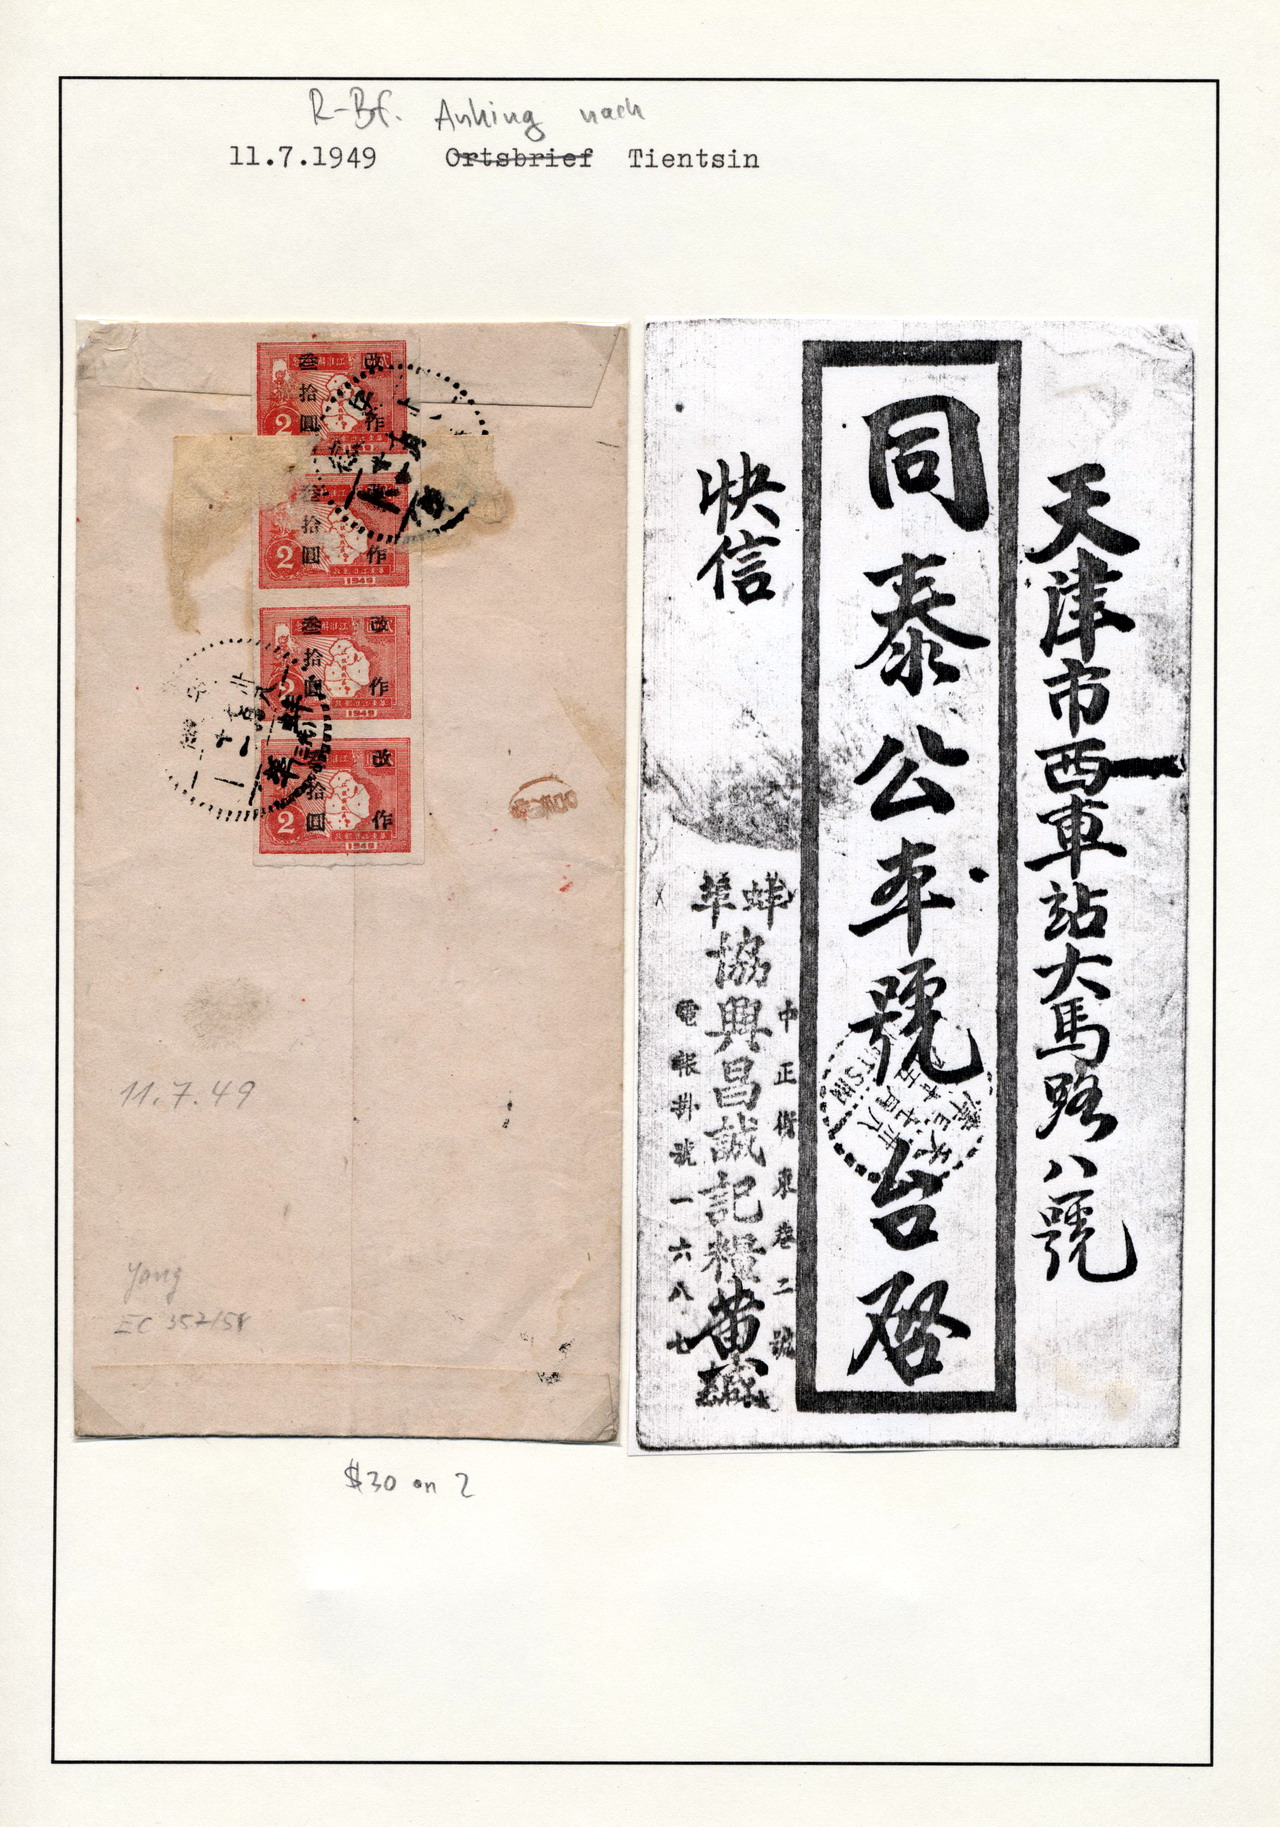 R-Bf. Anking nach
11.7.1949 Ortsbrief Tientsin
改作
叁拾圓
2
改作
叁拾圓
2
1949
改作
叁拾圓
2
1949
改作
叁拾圓
2
1949
11.7.49
Yang
EC 357/58
$30 on 2
天津市西車站大馬路八號
同泰公車號台啓
快信
中正街東巷二號
蚌埠
協興昌誠記糧
電報掛號一六八七